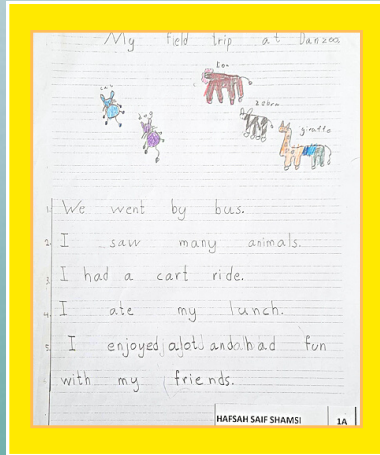 My field trip at Danzoo
lion
cat
zebra
dog
giraffe
1. We went by bus.
2. I saw many animals.
3. I had a cart ride.
4. I ate my lunch.
5. I enjoyed alot and had fun
with my friends.
HAFSAH SAIF SHAMSI 1A